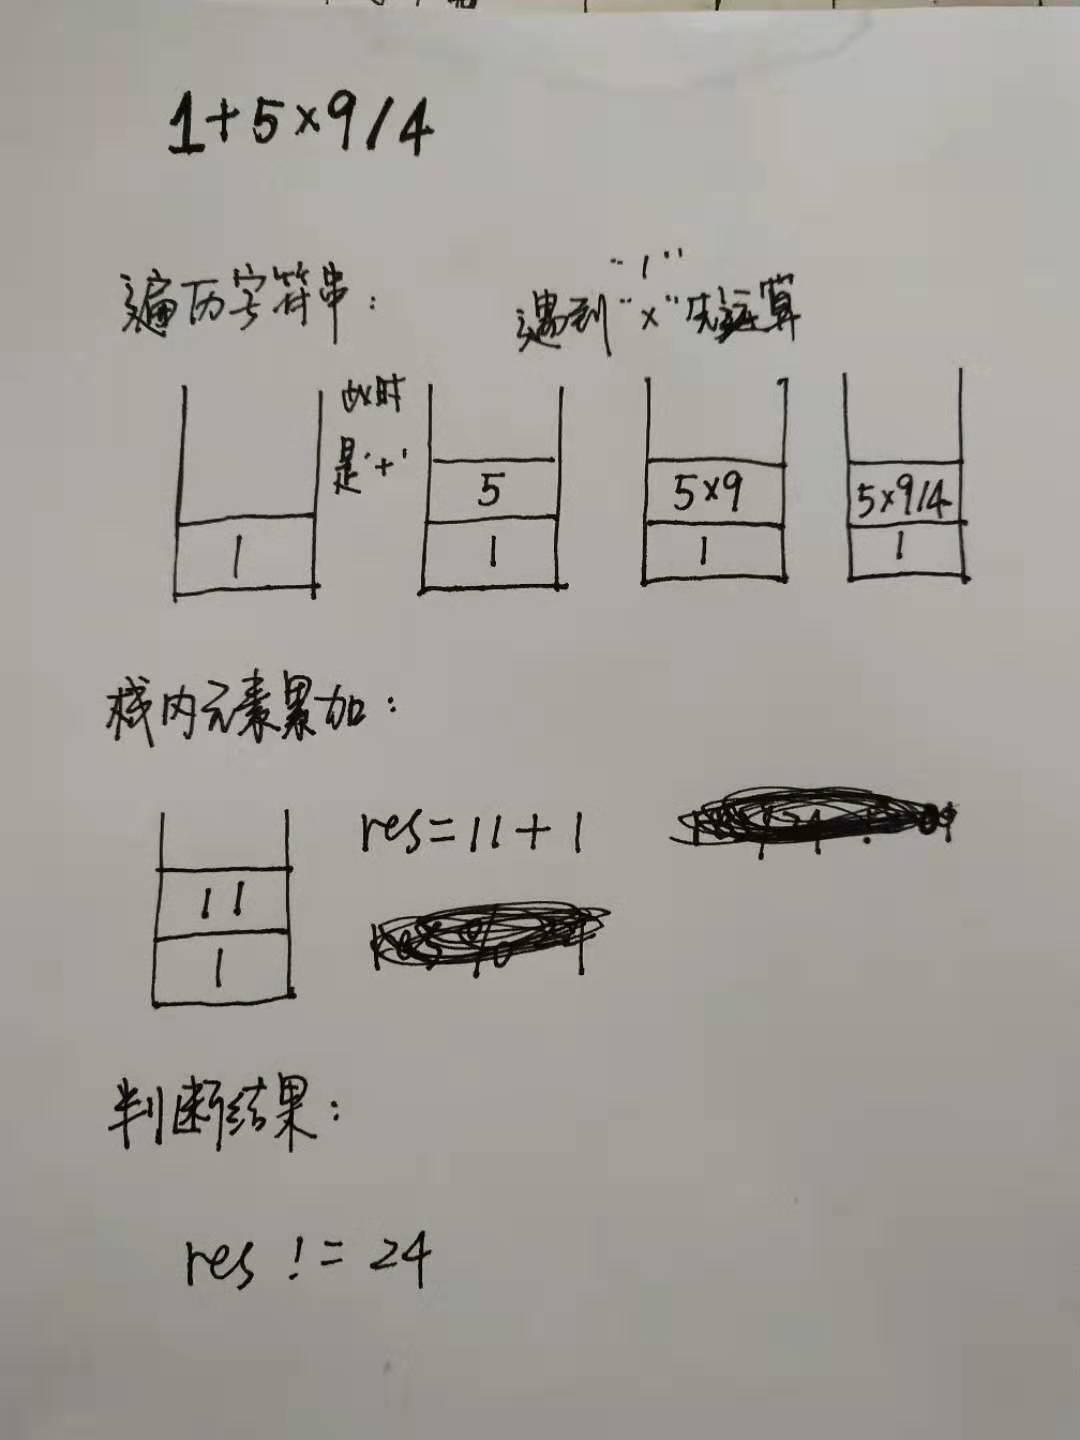 1+5×9/4
"/"
遍历字符串： 遇到"×"先运算
此时
是'+'
5 5×9 5×9/4
1 1 1 1
栈内元素累加：
res=11+1
11
1
判断结果：
res != 24